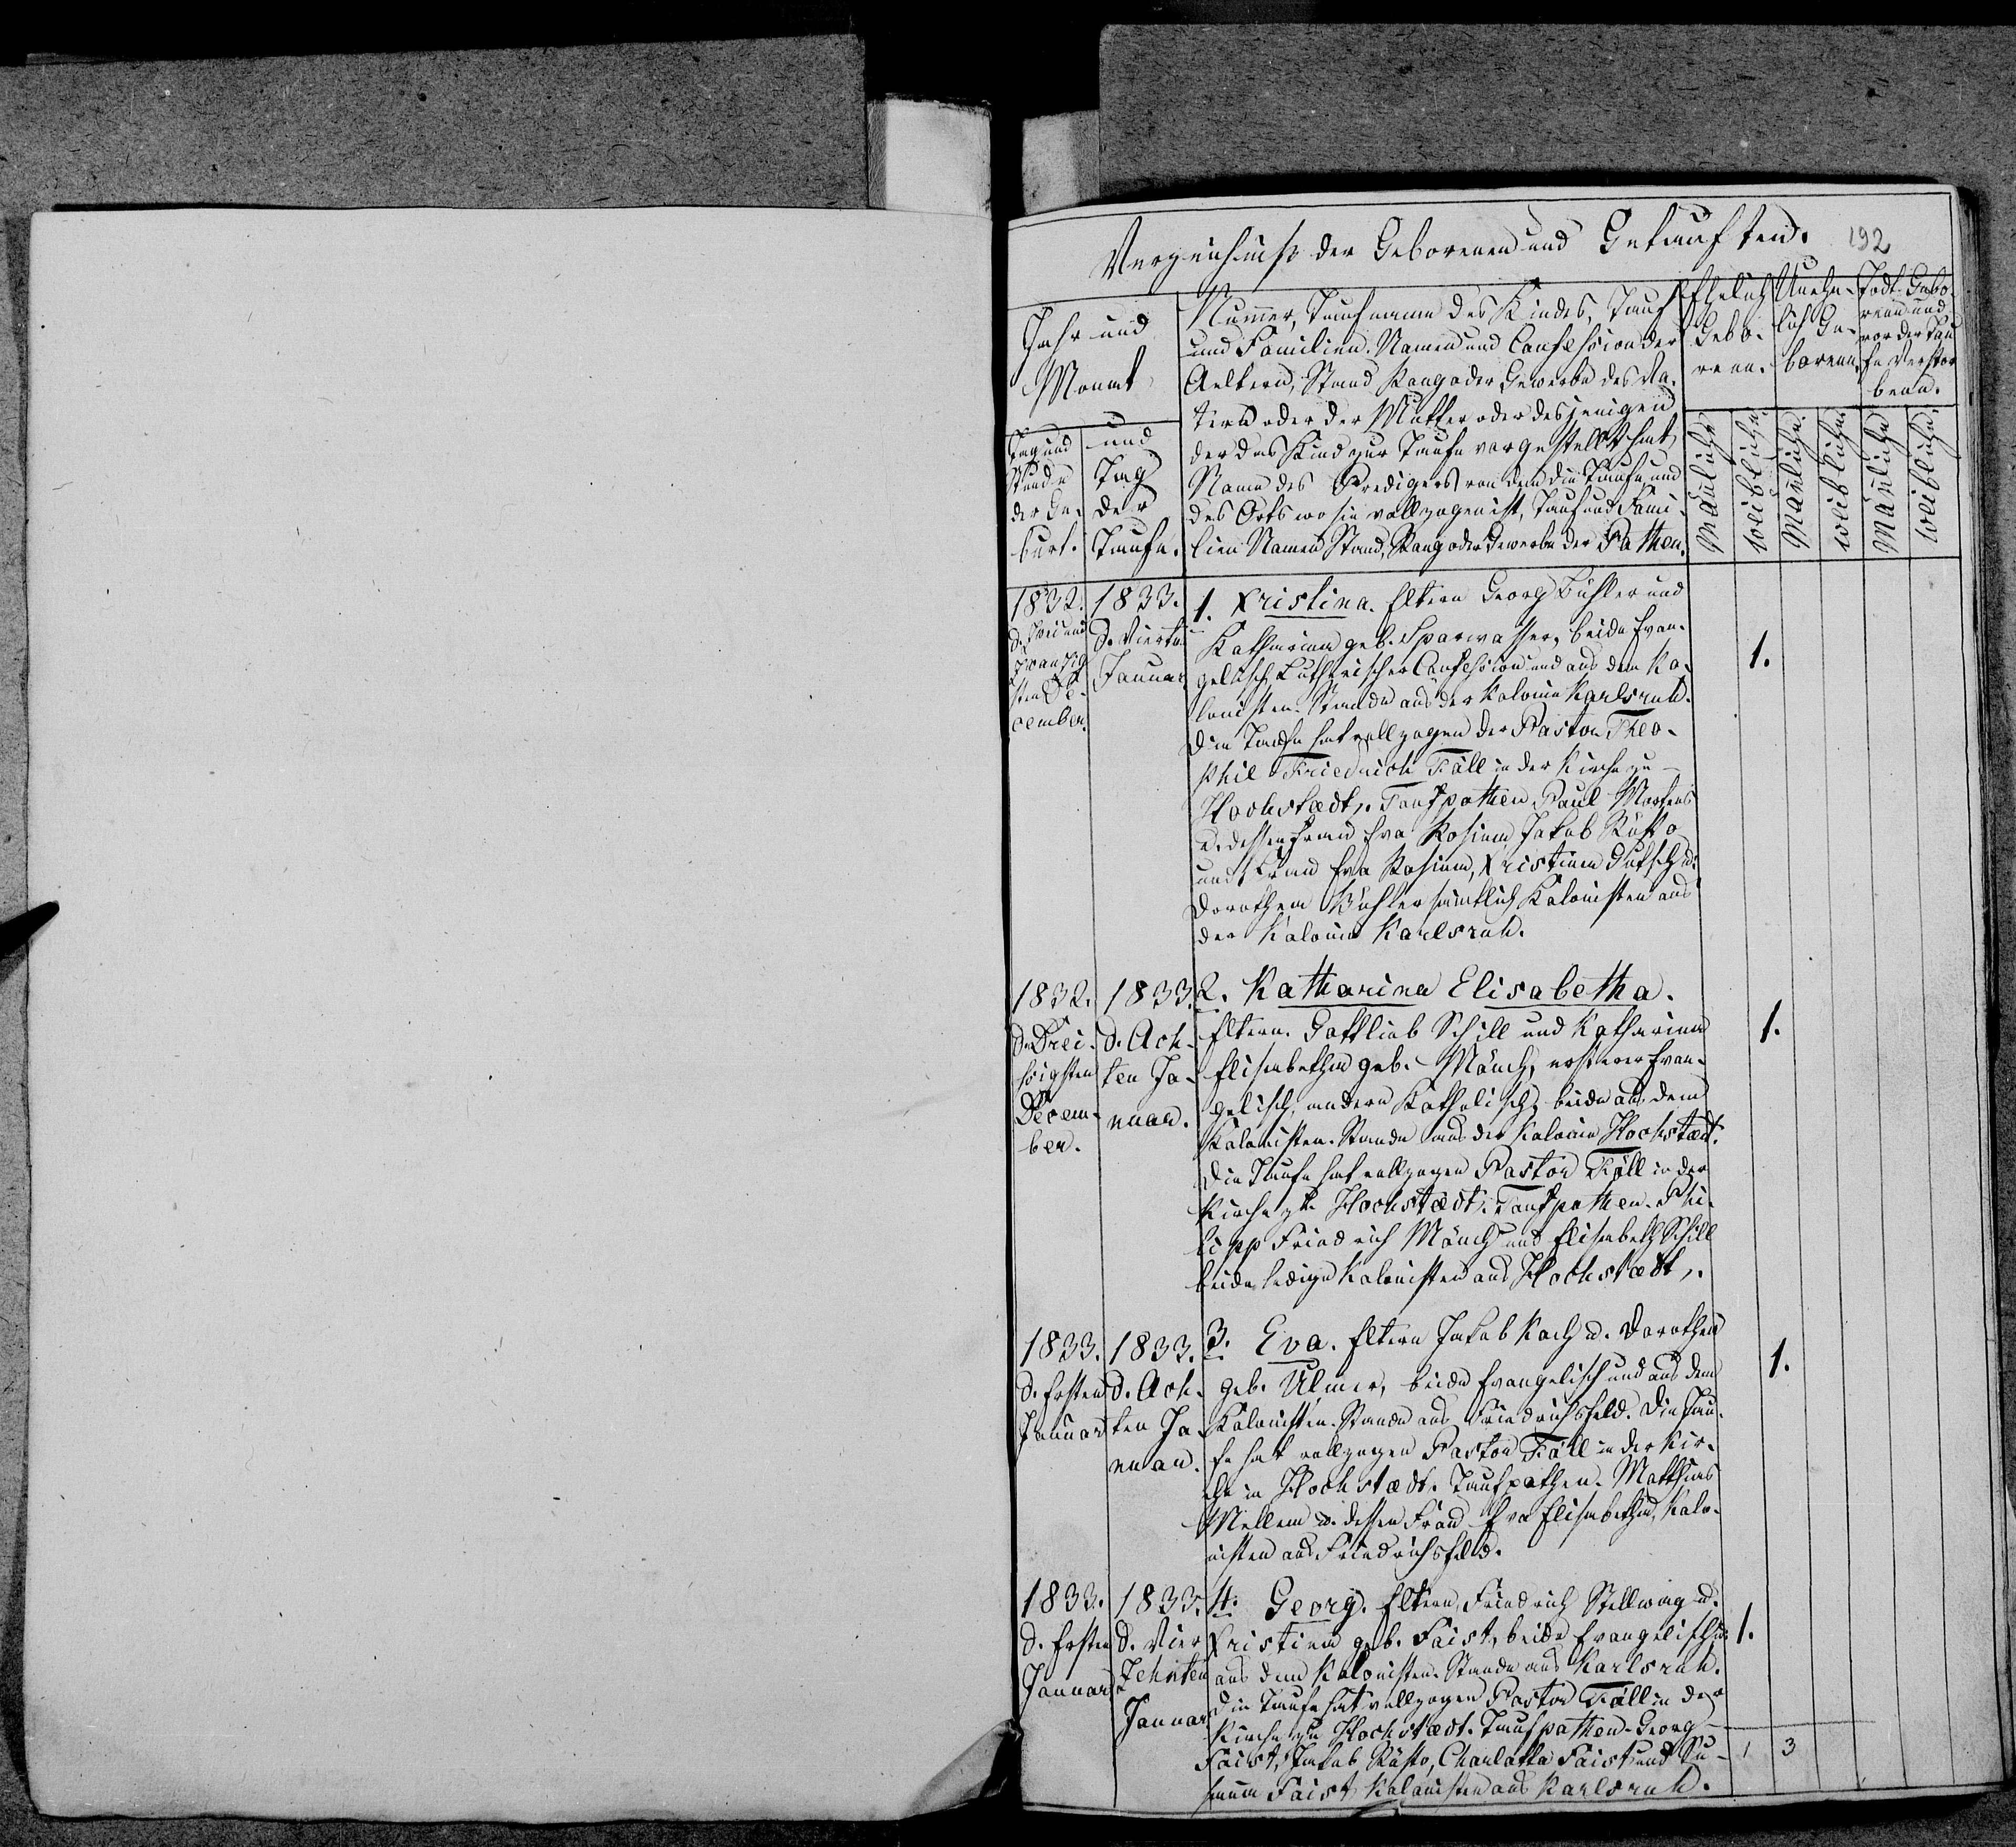 Verzeichniß der Geborenen und Getauften.
192
Jahr und
Monat
Tag und
Stunde
der Ge-
burt.
und
Tag
der
Taufe.
Nummer, Taufname des Kindes, Tauf
und Familien-Namen und Confession der
Aeltern, Stand Rang oder Gewerbe des Va-
ters oder der Mutter oder desjenigen
der das Kind zur Taufe vorgestellt hat,
Name des Predigers von dem die Taufe und
des Orts wo sie vollzogen ist, Tauf und Fami-
lien Namen Stand, Rang oder Gewerbe der Pathen.
Ehelich
Gebo-
renen.
Unehe-
lich Ge-
borenen.
Todt-Gebo-
renen und
vor der Tau
fe Verstor
benen.
Mänliche
weibliche
Mänliche
weibliche
Mänliche
weibliche
1832.
d. Zwei und
zwanzig
sten De-
cember.
1833.
d. Vierten
Januar
1. Xristina. Eltern Georg Bühler und
Katharina geb. Sparwasser, beide Evan-
gelisch Luthrischer Confession und aus dem Ko-
lonisten-Stande aus der Kolonie Karlsruh.
Die Taufe hat vollzogen der Pastor Theo-
phil Friedrich Föll in der Kirche zu
Hochstædt. Taufpathen Paul Martens
u. dessen Frau Eva Rosina, Jakob
und Frau Eva Rosina, Xristina u.
Dorothea Bühler sämtlich Kolonisten aus
der Kolonie Karlsruh.
1.
1832.
d. Drei-
ßigsten
Decem-
ber.
1833.
d. Ach-
ten Ja-
nuar.
2. Katharina Elisabetha.
Eltern. Gottlieb Schill und Katharina
Elisabetha geb. Mönch, ersterer Evan-
gelisch, andere Katholisch, beide aus dem
Kolonisten-Stande aus der Kolonie Hochstædt.
Die Taufe hat vollzogen Pastor Föll in der
Kirche zu Hochstædt. Taufpathen. Phi-
lipp Friedrich Mönch und Elisabeth Schill
beide ledige Kolonisten aus Hochstædt.
1.
1833.
d. Ersten
Januar
1833.
d. Ach-
ten Ja-
nuar.
3. Eva. Eltern Jakob Koch u. Dorothea
geb. Ulmer, beide Evangelisch und aus dem
Kolonisten-Stande aus Friedrichsfeld. Die Tau-
fe hat vollzogen Pastor Föll in der Kir-
che in Hochstædt. Taufpathen. Matthias
Mellem u. dessen Frau Eva Elisabetha, Kolo-
nisten aus Friedrichsfeld.
1.
1833.
d. Ersten
Januar
1833.
d. Vier
Zehnten
Januar
4. Georg. Eltern Friedrich Stellwag u.
Xristina geb. Faist, beide Evangelisch u.
aus dem Kolonisten-Stande aus Karlsruh.
Die Taufe hat vollzogen Pastor Föll in der
Kirche zu Hochstædt. Taufpathen-Georg
Faist, Jakob Charlotta Faist und Su-
sanna Faist Kolonisten aus Karlsruh.
1.
1 3